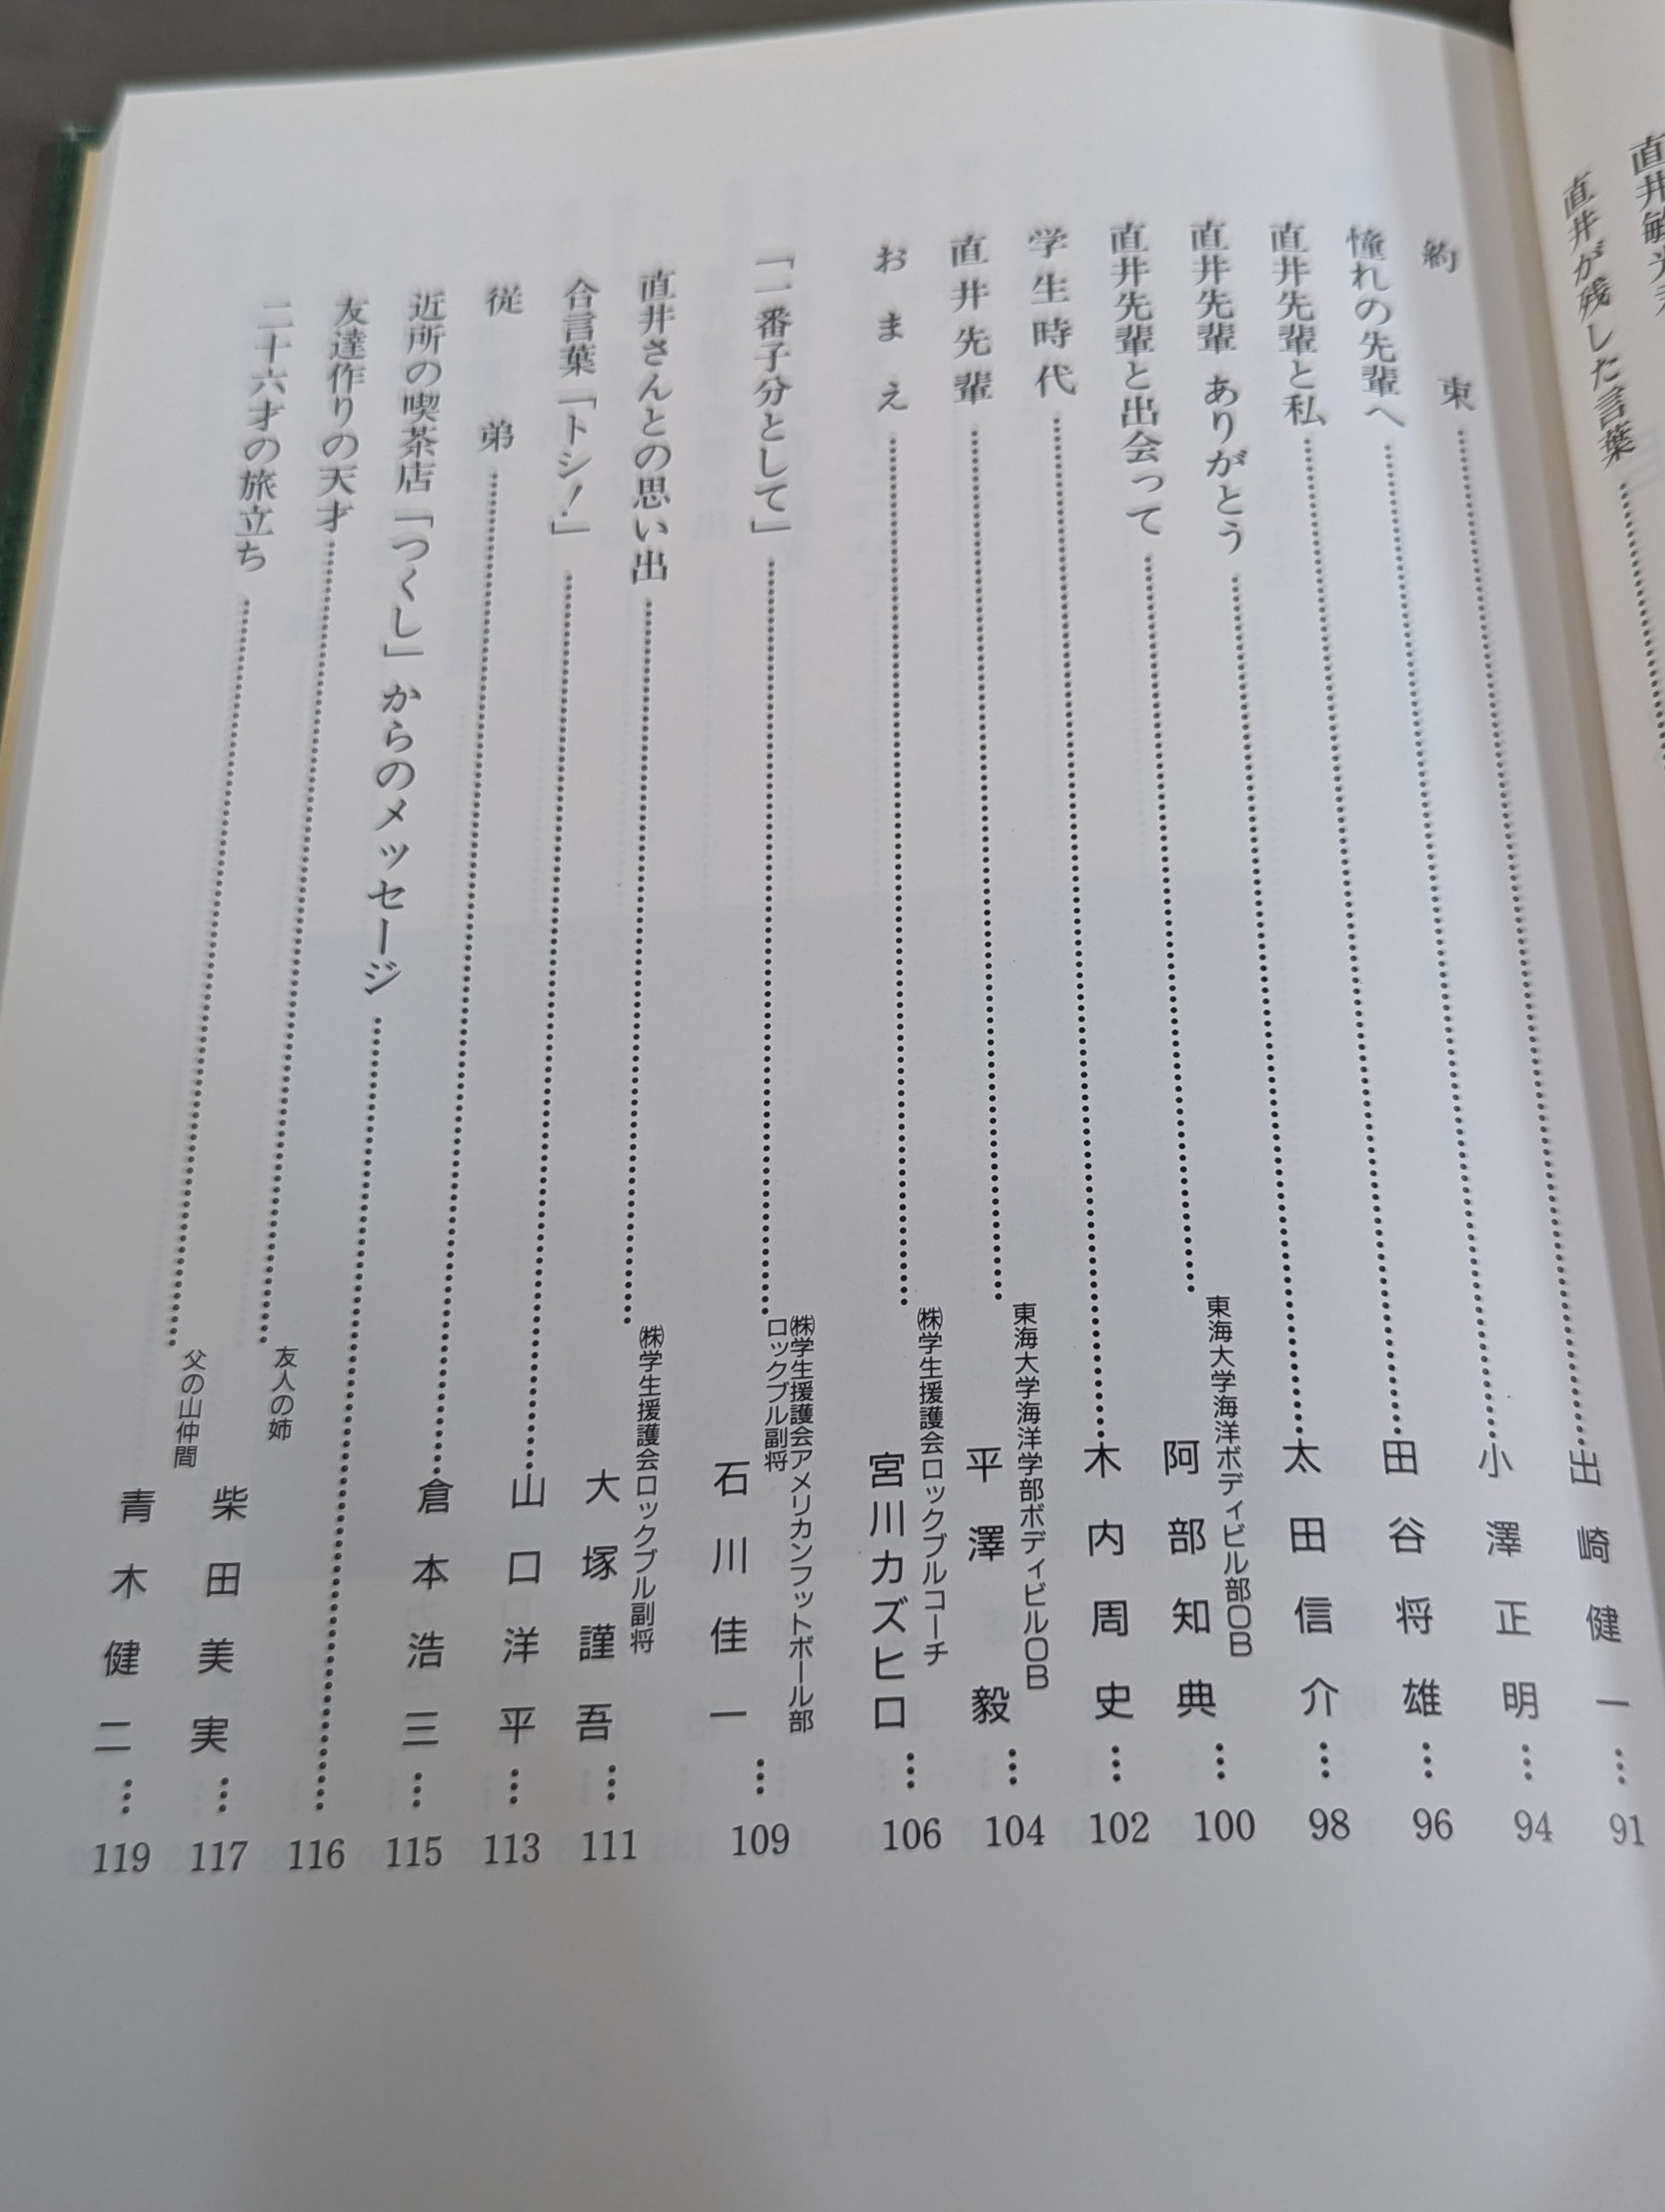 直井が残した言葉
約束 出崎健一 91
憧れの先輩へ 小澤正明 94
直井先輩と私 田谷将雄 96
直井先輩 ありがとう 太田信介 98
直井先輩と出会って 東海大学海洋ボディビル部OB 阿部知典 100
学生時代 木内周史 102
直井先輩 東海大学海洋学部ボディビルOB 平澤毅 104
おまえ ㈱学生援護会ロックブルコーチ 宮川カズヒロ 106
「一番子分として」 ㈱学生援護会アメリカンフットボール部 ロックブル副将 石川佳一 109
直井さんとの思い出 ㈱学生援護会ロックブル副将 大塚謹吾 111
合言葉「トシ!」 山口洋平 113
従弟 倉本浩三 115
近所の喫茶店「つくし」からのメッセージ 116
友達作りの天才 友人の姉 柴田美実 117
二十六才の旅立ち 父の山仲間 青木健二 119